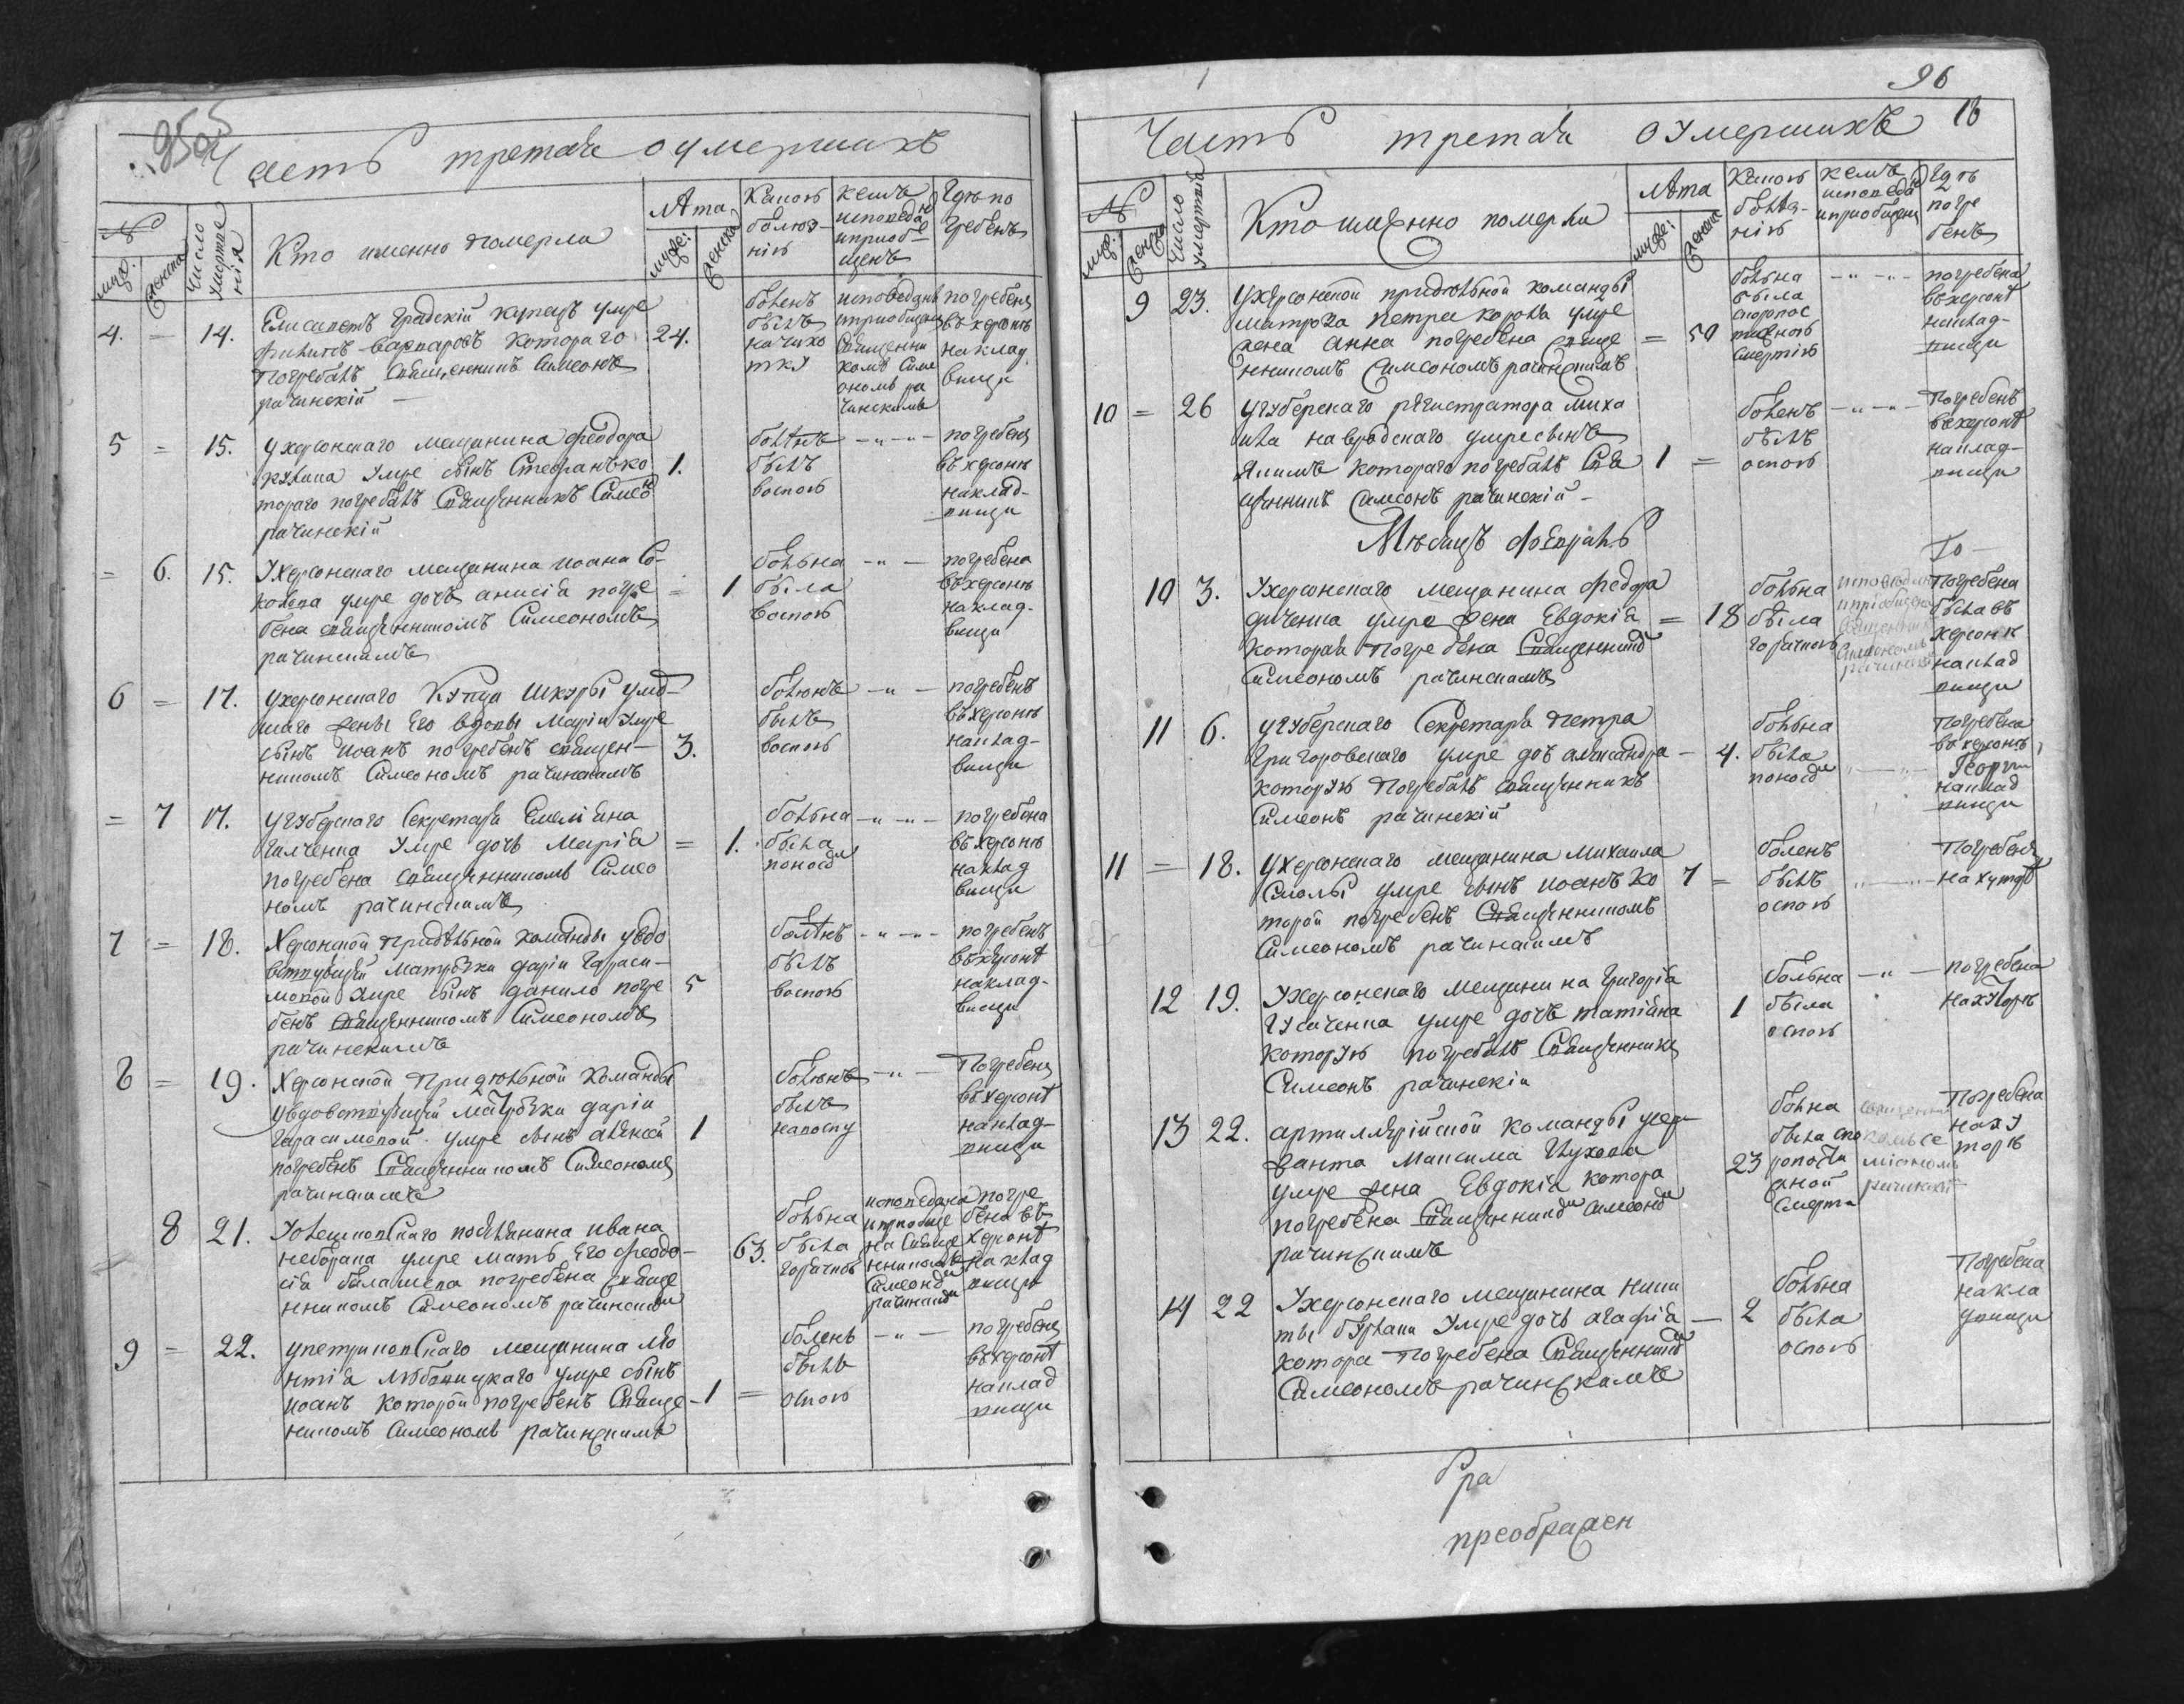 Часть третая оумершихъ
№
муж.
женска
Число умертвія
Кто именно померли
Лѣта
муже:
женска
Какою болѣзнію
кемъ исповеданъ иприобщенъ
Гдѣ погребенъ
4. = 14. Елисаветъ Градскій купецъ умре
филипъ варваровъ котораго
Погребалъ Священникъ Симеонъ
рачинскій
24.
боленъ
былъ
начихо
тку
исповеданъ
иприобщенъ
Священни
комъ Симе
ономъ ра
чинскимъ
погребенъ
въ херсонѣ
наклад
вищи
5 = 15. Ухерсонскаго мещанина феодора
умре сынъ Стефанъ ко
тораго погребалъ Священникъ Симеон
рачинскій
1.
боленъ
былъ
воспою
погребенъ
въ херсонѣ
наклад-
вищи
= 6. 15. Ухерсонскаго мещанина иоана Со-
умре дочь анисія погре
бена священникомъ Симеономъ
рачинскимъ
= 1
больна
была
воспою
погребена
въ херсонѣ
наклад-
вищи
6 = 17. ухерсонскаго купца шкуры умер-
шаго жены его вдовы Маріи умре
сынъ иоанъ погребенъ священ-
никомъ Симеономъ рачинскимъ
3.
болѣнъ
былъ
воспою
погребенъ
въ херсонѣ
наклад-
вищи
= 7 17. угуберскаго Секретаря Емеліана
Галченка умре дочь Марія
погребена священникомъ Симео
номъ рачинскимъ
= 1.
больна
была
поносом
погребена
въ херсонѣ
наклад
вищи
7 = 18. Херсонской Придѣльной команды увдо
вствующей матрозки даріи Гараси-
мовой умре сынъ данило погре
бенъ священникомъ Симеономъ
рачинскимъ
5
болѣнъ
былъ
воспою
погребенъ
въ херсонѣ
наклад-
вищи
8 = 19. Херсонской Придѣльной команды
увдовствующей матрозки даріи
Гарасимовой умре сынъ алексей
погребенъ Священникомъ Симеономъ
рачинскимъ
1
болѣнъ
былъ
наоспу
Погребенъ
въ херсонѣ
наклад-
вищи
8 21. поселянина ивана
неборака умре мать его феодо-
сія погребена свяще
нникомъ Симеономъ рачинским
63.
больна
была
горячкою
исповедана
иприобще
на Свяще
нникомъ
Симеоном
рачинским
погре
бена въ
херсонѣ
наклад
вищи
9 = 22. мещанина Лео
нтія умре сынъ
иоанъ которой погребенъ Свяще-
никомъ Симеономъ рачинскимъ
1 =
боленъ
былъ
оспою
погребенъ
въ херсонѣ
наклад
вищи
96
16
Часть третая оумершихъ
№
муж.
женска
Число умертвій
Кто именно померли
Лѣта
муже:
женска
Какою болѣзнію
кемъ исповедан иприобщенъ
Гдѣ погребенъ
9 23. Ухерсонской придѣльной команды
матроза петра корола умре
жена анна погребена свяще
нникомъ Симеономъ рачинскимъ
= 50
больна
была
скоропос
тижною
смертію
погребена
въ херсонѣ
наклад-
вищи
10 = 26 угуберскаго регистратора миха
ила навродскаго умре сынъ
Якимъ котораго погребалъ Свя
щенникъ Симеонъ рачинскій
1 =
боленъ
былъ
оспою
Погребенъ
въ херсонѣ
наклад-
вищи
Мѣсяцъ февраль
10 3. Ухерсонскаго мещанина федора
умре жена Евдокія
которая погребена Священником
Симеономъ рачинскимъ
= 18
больна
была
горячкою
исповедана
иприобщена
священник
Симеономъ
рачинским
То-
Погребена
была въ
херсонѣ
наклад
вищи
11 6. угуберскаго Секретаря петра
Григоровскаго умре доч александра
которую погребалъ священникъ
Симеонъ рачинскій
4.
больна
была
поносом
Погребена
въ херсонѣ
наклад
вищи
11 = 18. ухерсонскаго мещанина Михаила
Смолы умре сынъ иоанъ ко
торой погребенъ Священникомъ
Симеономъ рачинскимъ
7 =
боленъ
былъ
оспою
Погребенъ
на хуторѣ
12 19. Ухерсонскаго мещанина Григорія
Гусаченка умре дочь татіана
которую погребалъ Священникъ
Симеонъ рачинскій
1
больна
была
оспою
погребена
на хуторѣ
13 22. артиллерійской команды сер
жанта Максима Глухова
умре жена Евдокія котора
погребена Священником Симеоном
рачинскимъ
23
болна
была ско
ропости
жной
смерти
священни
комъ Си
меономъ
рачинским
Погребена
на ху
торѣ
14 22 Ухерсонскаго мещанина Ники
ты умре дочь агафія
котора погребена Священником
Симеономъ рачинскимъ
2
больна
была
оспою
Погребена
накла
довищи
бра
преображен